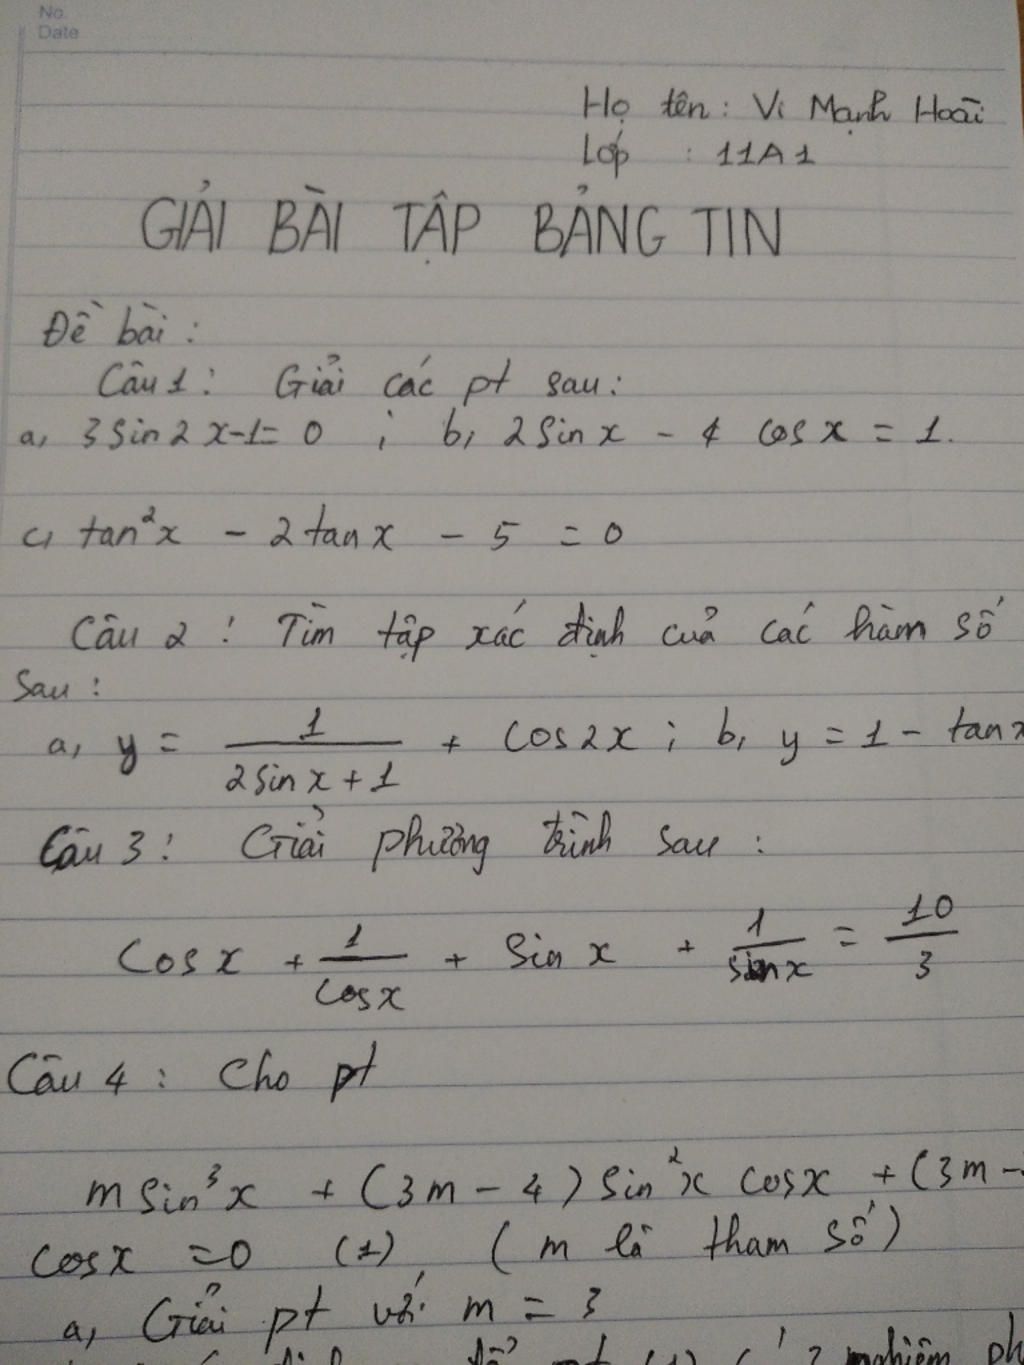 No.
Date
Họ tên : Vi Mạnh Hoài
Lớp : 11A1
GIẢI BÀI TẬP BẢNG TIN
Đề bài :
Câu 1 : Giải các pt sau :
a, 3 sin 2x-1= 0 ; b, 2 sin x - 4 cos x = 1.
c, tan²x - 2 tan x - 5 = 0
Câu 2 : Tìm tập xác định của các hàm số
sau :
a, y = 1/(2 sin x + 1) + cos 2x ; b, y = 1 - tan x
Câu 3 : Giải phương trình sau :
cos x + 1/cos x + sin x + 1/sin x = 10/3
Câu 4 : Cho pt
m sin³x + (3m - 4) sin²x cos x + (3m -
cos x = 0 (1) (m là tham số)
a, Giải pt với m = 3
pt (1) có 3 nghiệm